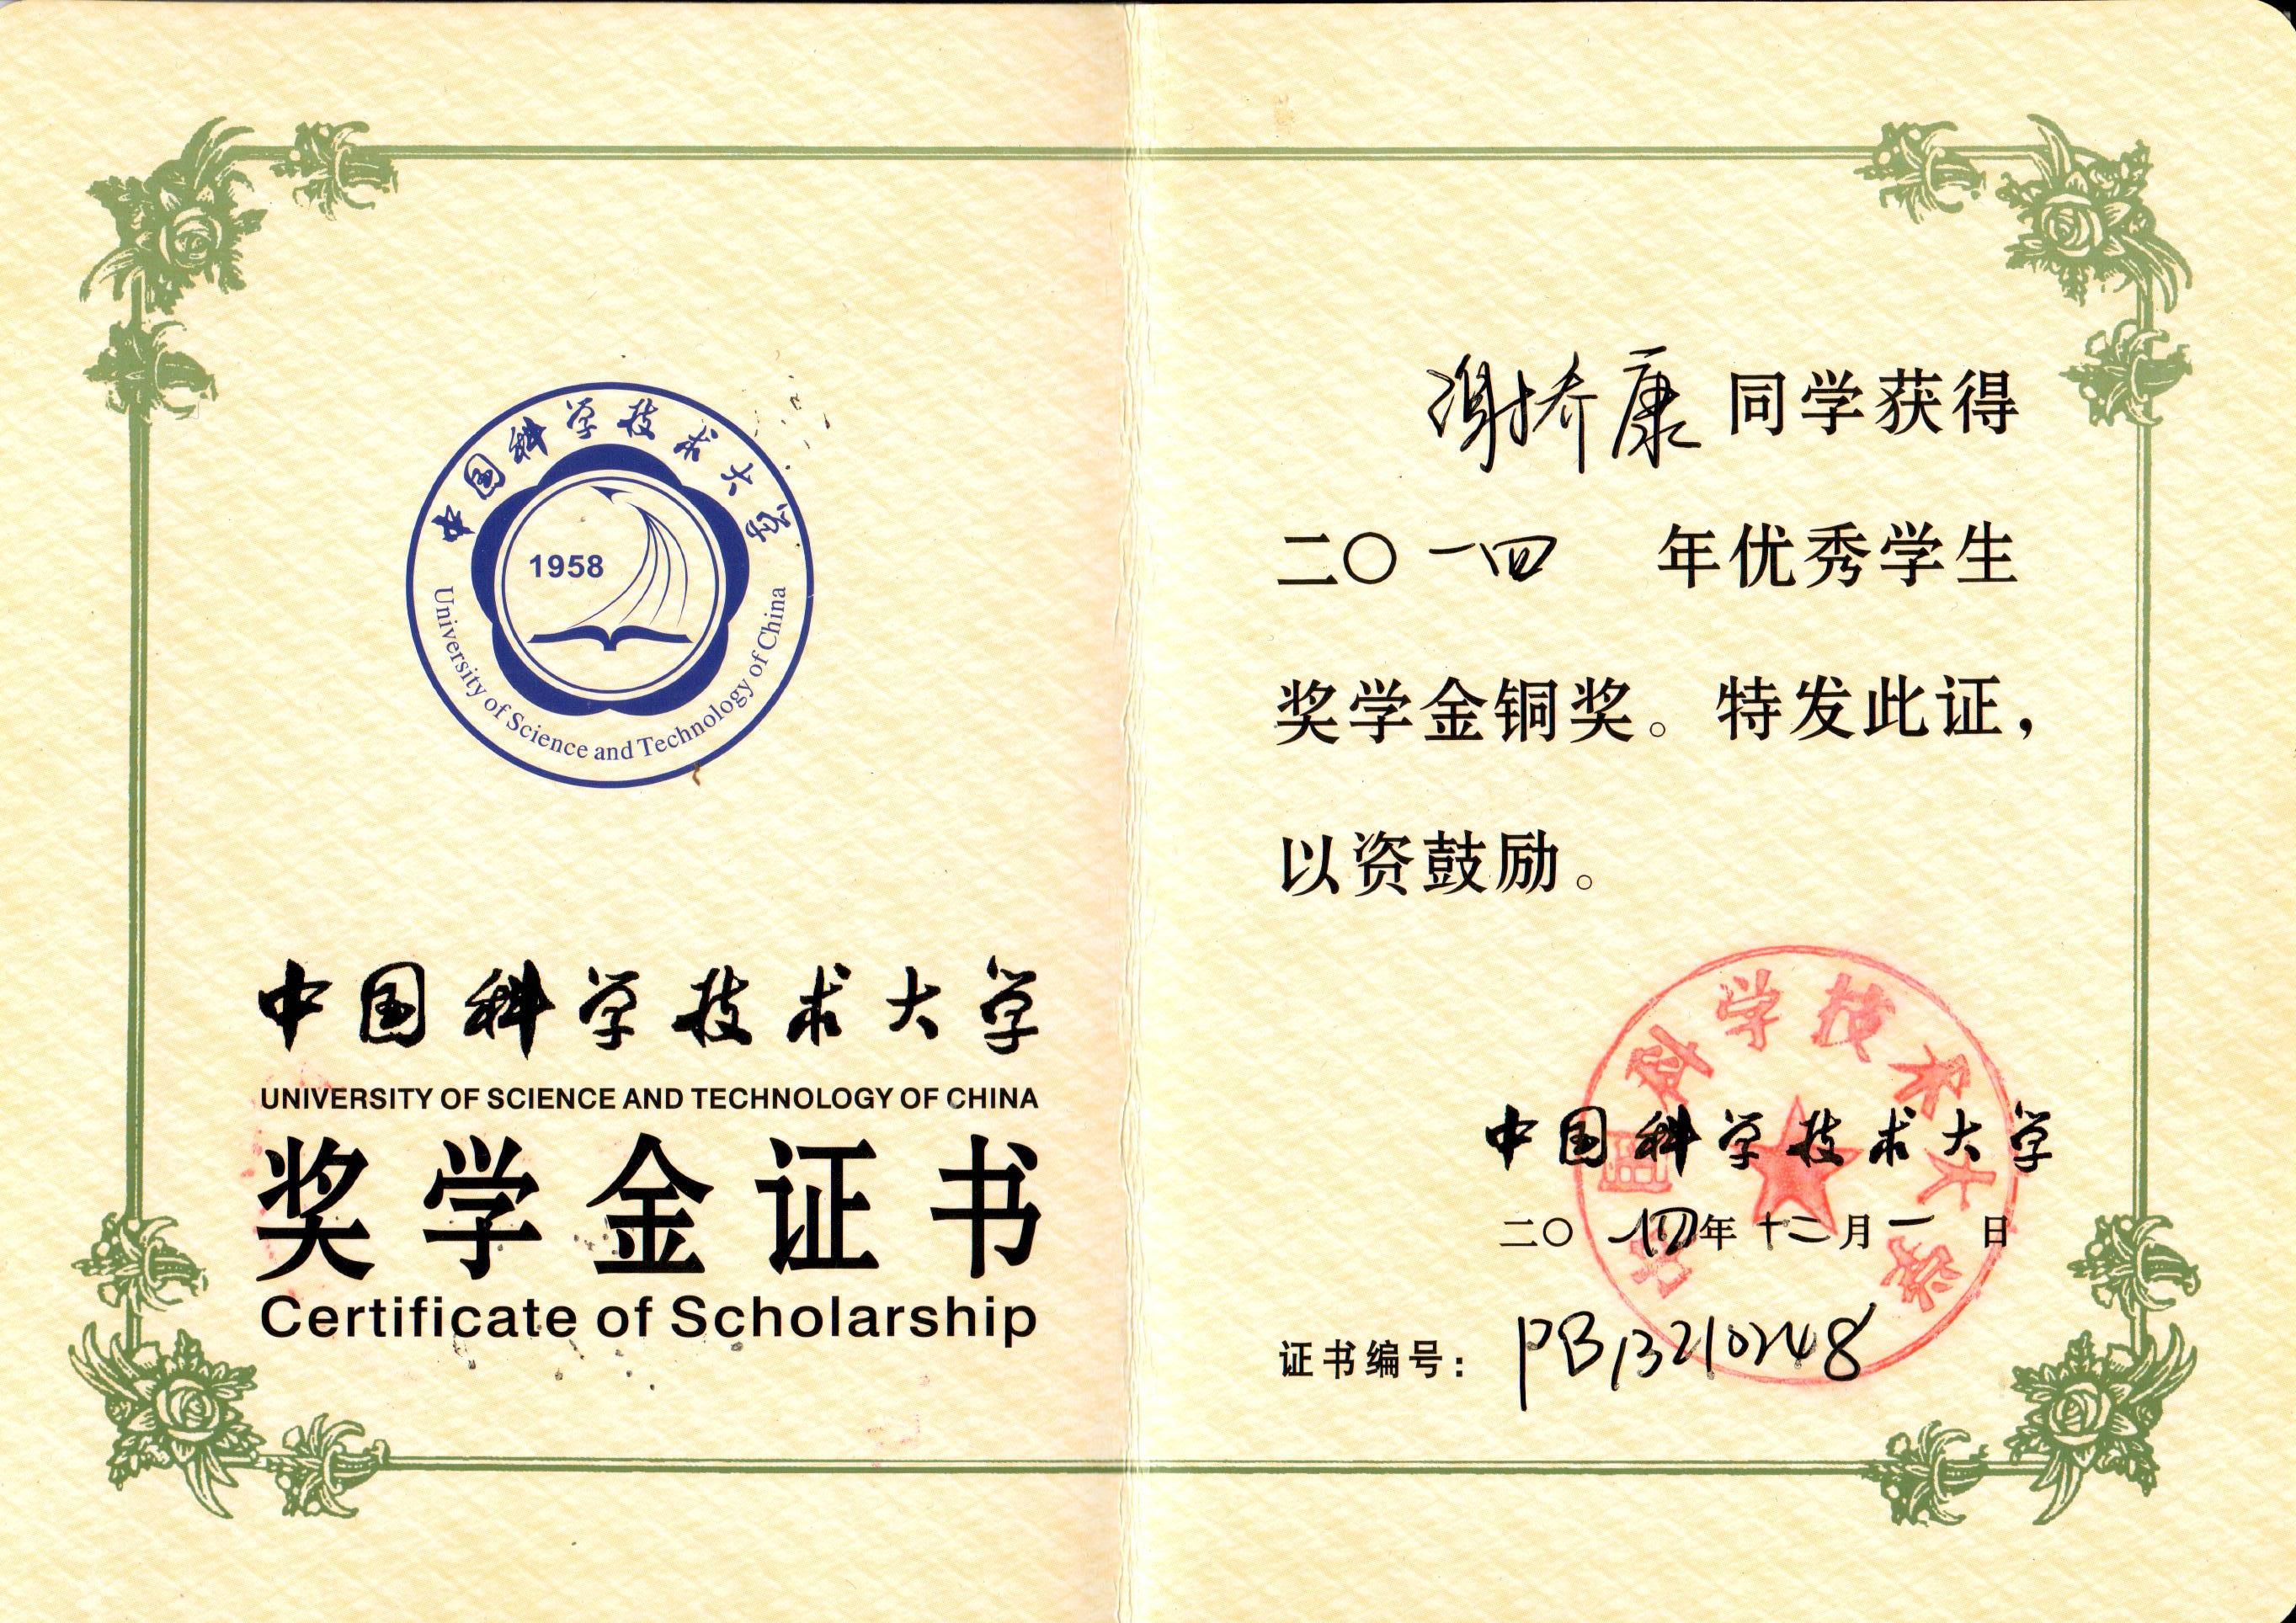 中国科学技术大学
1958
University of Science and Technology of China
中国科学技术大学
UNIVERSITY OF SCIENCE AND TECHNOLOGY OF CHINA
奖学金证书
Certificate of Scholarship
谢桥康同学获得
二〇一四 年优秀学生
奖学金铜奖。特发此证，
以资鼓励。
中国科学技术大学
中国科学技术大学
二〇一四年十二月一日
证书编号：PB13210248